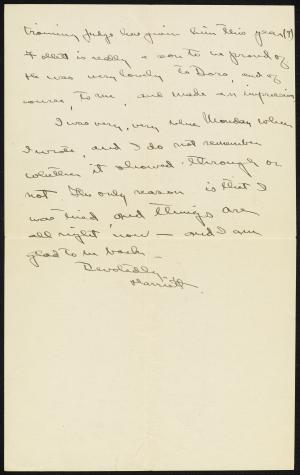 training Judge has given him this year (?)
Follett is really a son to be proud of
He was very lovely to Dora, and of
course, to me, and made an impression
I was very, very blue Monday when
I wrote and I do not remember
whether it showed through or
not. The only reason is that I
was tired and things are
all right now — and I am
glad to be back —
Devotedly —
Harriett.